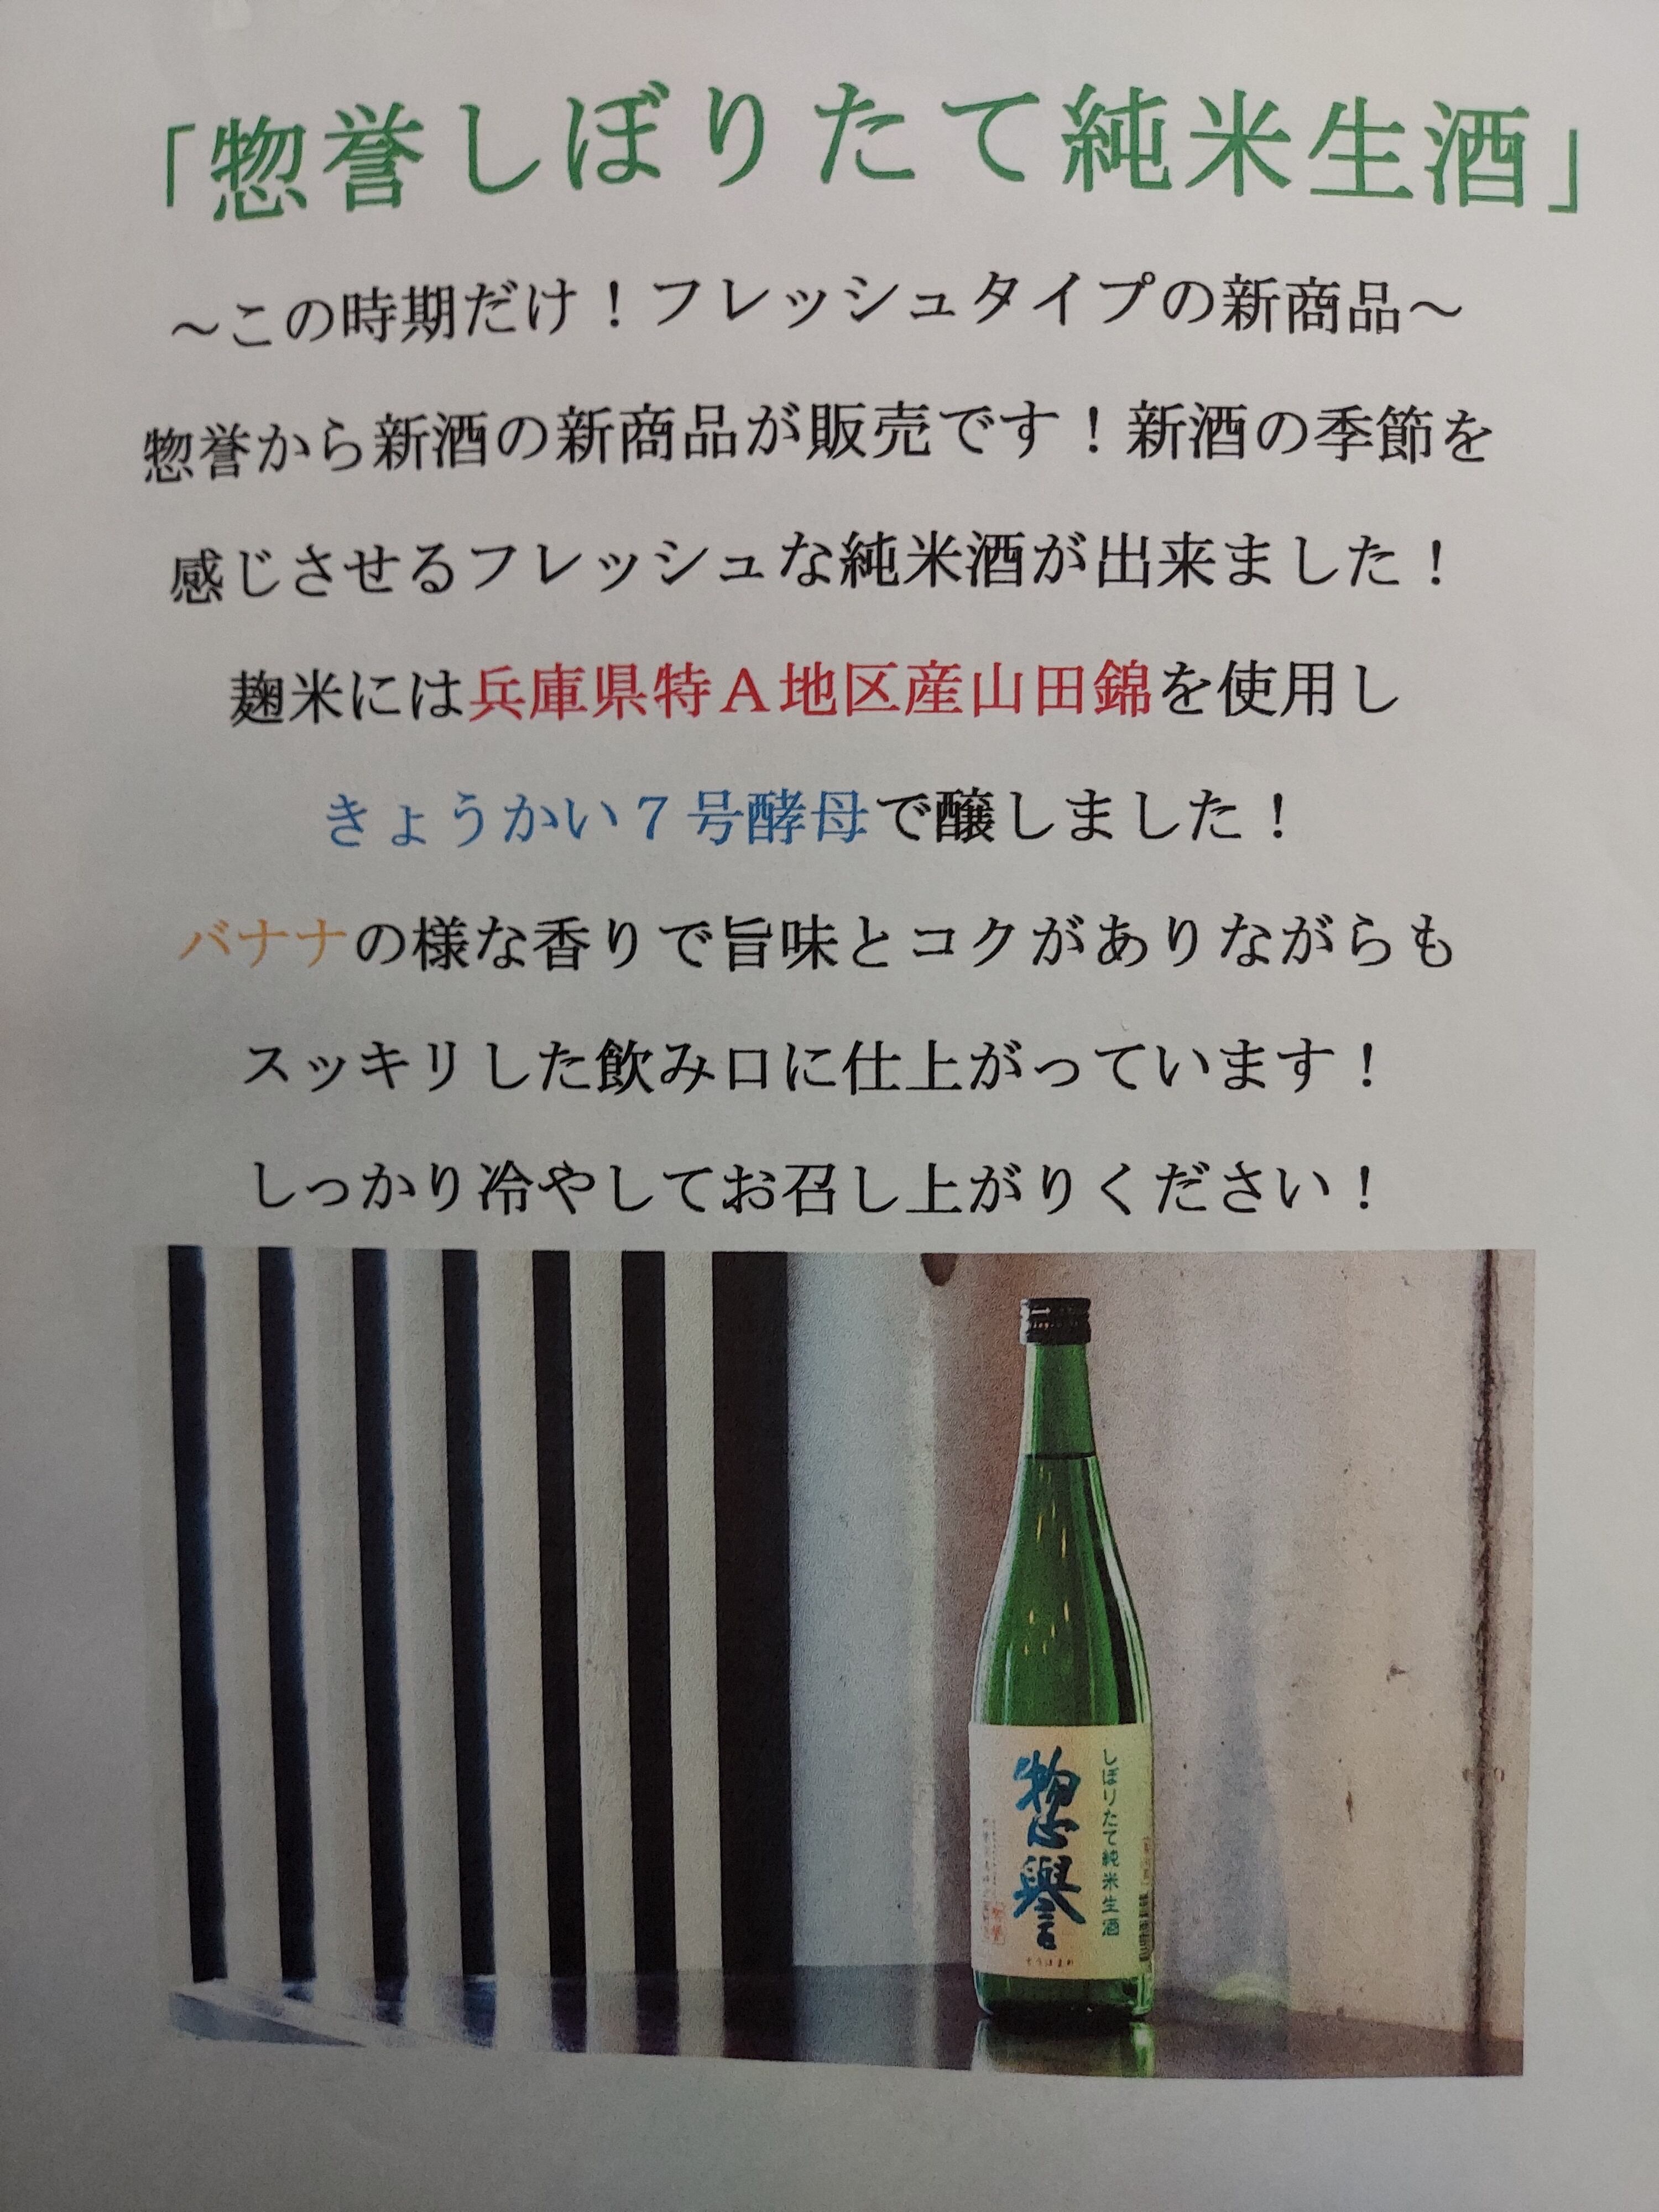 「惣誉しぼりたて純米生酒」
～この時期だけ！フレッシュタイプの新商品～
惣誉から新酒の新商品が販売です！新酒の季節を
感じさせるフレッシュな純米酒が出来ました！
麹米には兵庫県特Ａ地区産山田錦を使用し
きょうかい７号酵母で醸しました！
バナナの様な香りで旨味とコクがありながらも
スッキリした飲み口に仕上がっています！
しっかり冷やしてお召し上がりください！
しぼりたて純米生酒
惣譽
そうほまれ